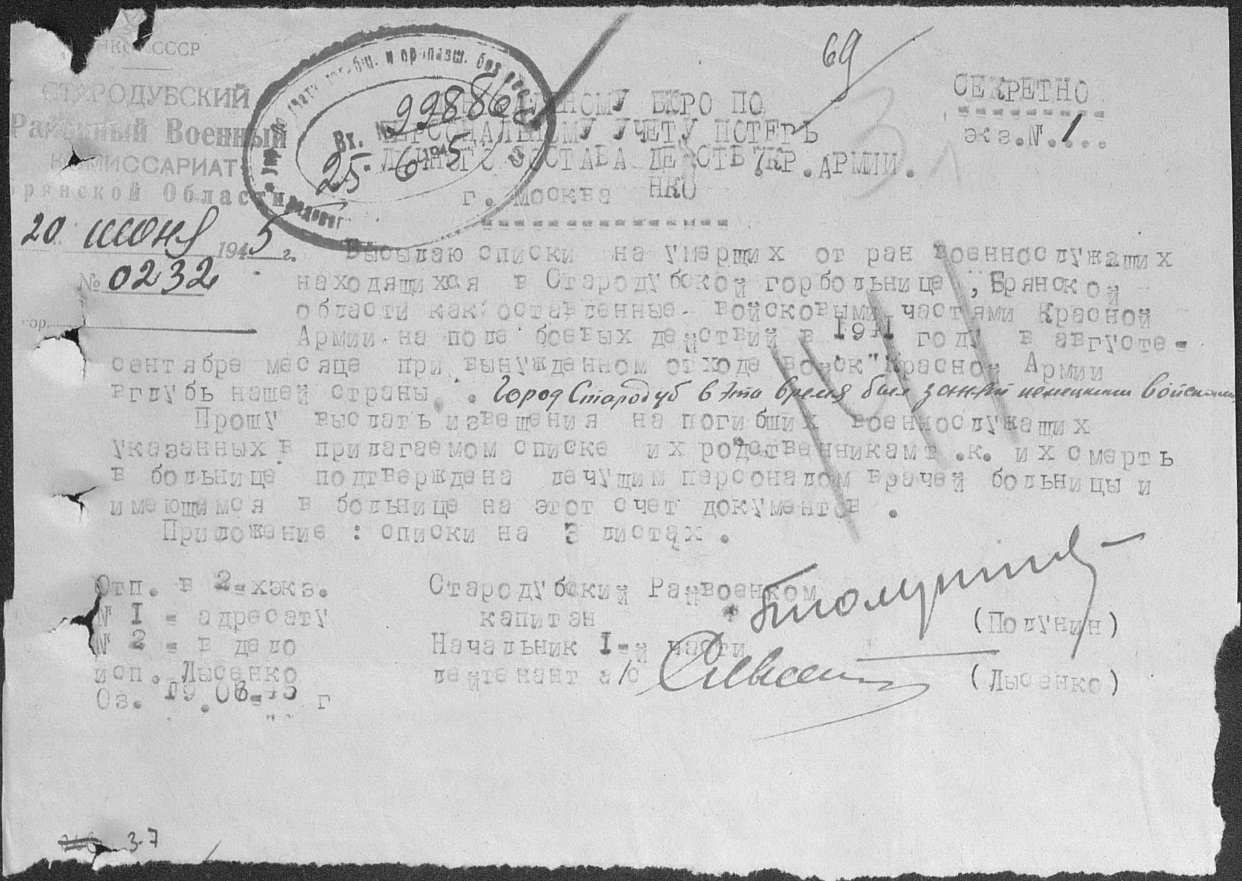 69
НКО СССР
СТАРОДУБСКИЙ
Районный Военный
КОМИССАРИАТ
Брянской Области
20 июня 1945 г.
№ 0232
Вх. № 22886
25 6 1945
СЕКРЕТНО
экз.№.1...
БЮРО ПО
ПЕРСОНАЛЬНОМУ УЧЕТУ ПОТЕРЬ
ЛИЧНОГО СОСТАВА ДЕЙСТВУЮ. АРМИИ.
г. Москва НКО
Высылаю списки на умерших от ран военнослужащих
находящихся в Стародубской горбольнице, Брянской
области как оставленные войсковыми частями Красной
Армии на поле боевых действий в 1941 году в августе-
сентябре месяце при вынужденном отходе войск Красной Армии
вглубь нашей страны. Город Стародуб в это время был занят немецкими войсками
Прошу выслать извещения на погибших военнослужащих
указанных в прилагаемом списке их родственникам т.к. их смерть
в больнице подтверждена лечущим персоналом врачей больницы и
имеющимся в больнице на этот счет документов.
Приложение: списки на 3 листах.
Отп. в 2-х экз.
№ 1 - адресату
№ 2 - в дело
исп. Лысенко
19.06.45 г
Стародубский Райвоенком
капитан
(Полунин)
Начальник 1-й части
лейтенант а/с
(Лысенко)
37